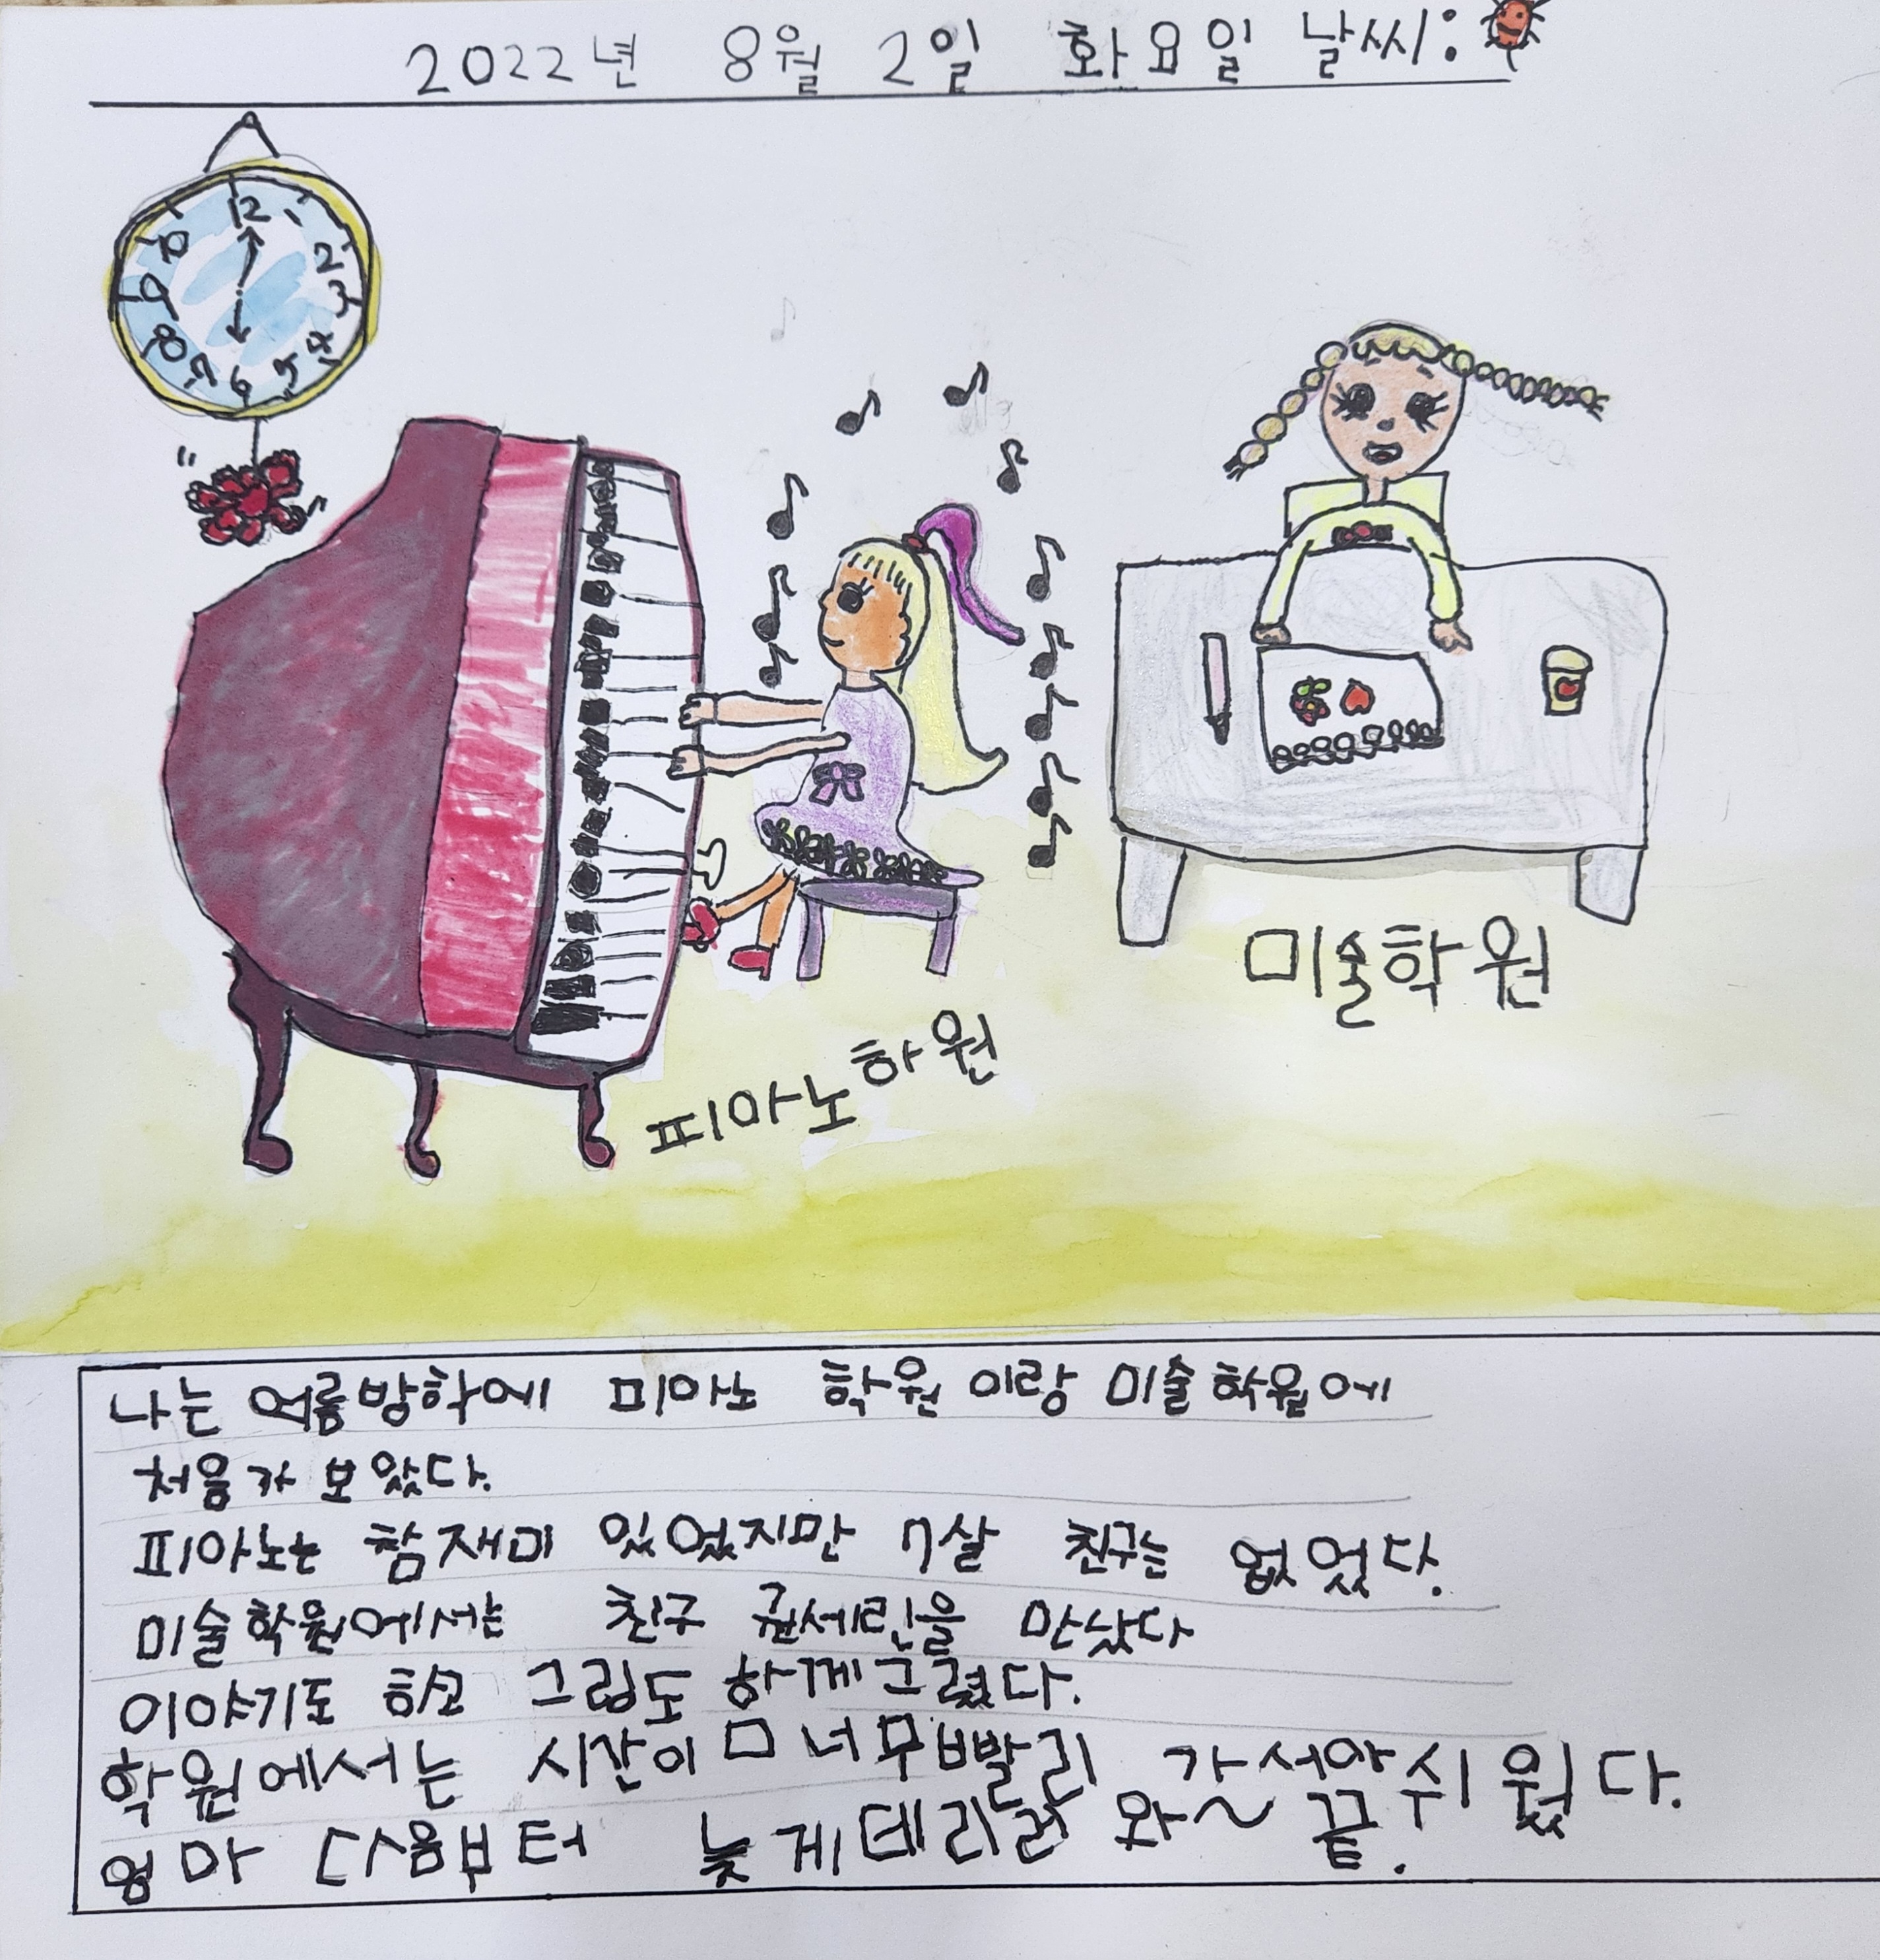 2022년 8월 2일 화요일 날씨:
12
10 2
9 3
8 4
7 6 5
피아노학원
미술학원
나는 여름방학에 피아노 학원이랑 미술학원에
처음가 보았다.
피아노는 참재미 있었지만 7살 친구는 없었다.
미술학원에서는 친구 권세린을 만났다
이야기도 하고 그림도 함께그렸다.
학원에서는 시간이 너무빨리 가서아쉬웠다.
엄마 다음부터 늦게데리러 와~ 끝.